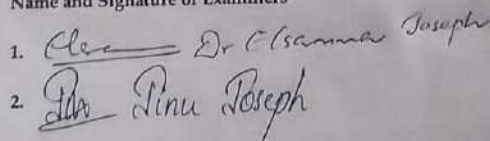 Name and Signature of Examiners
1. Dr Elsamma Joseph
2. Tinu Joseph